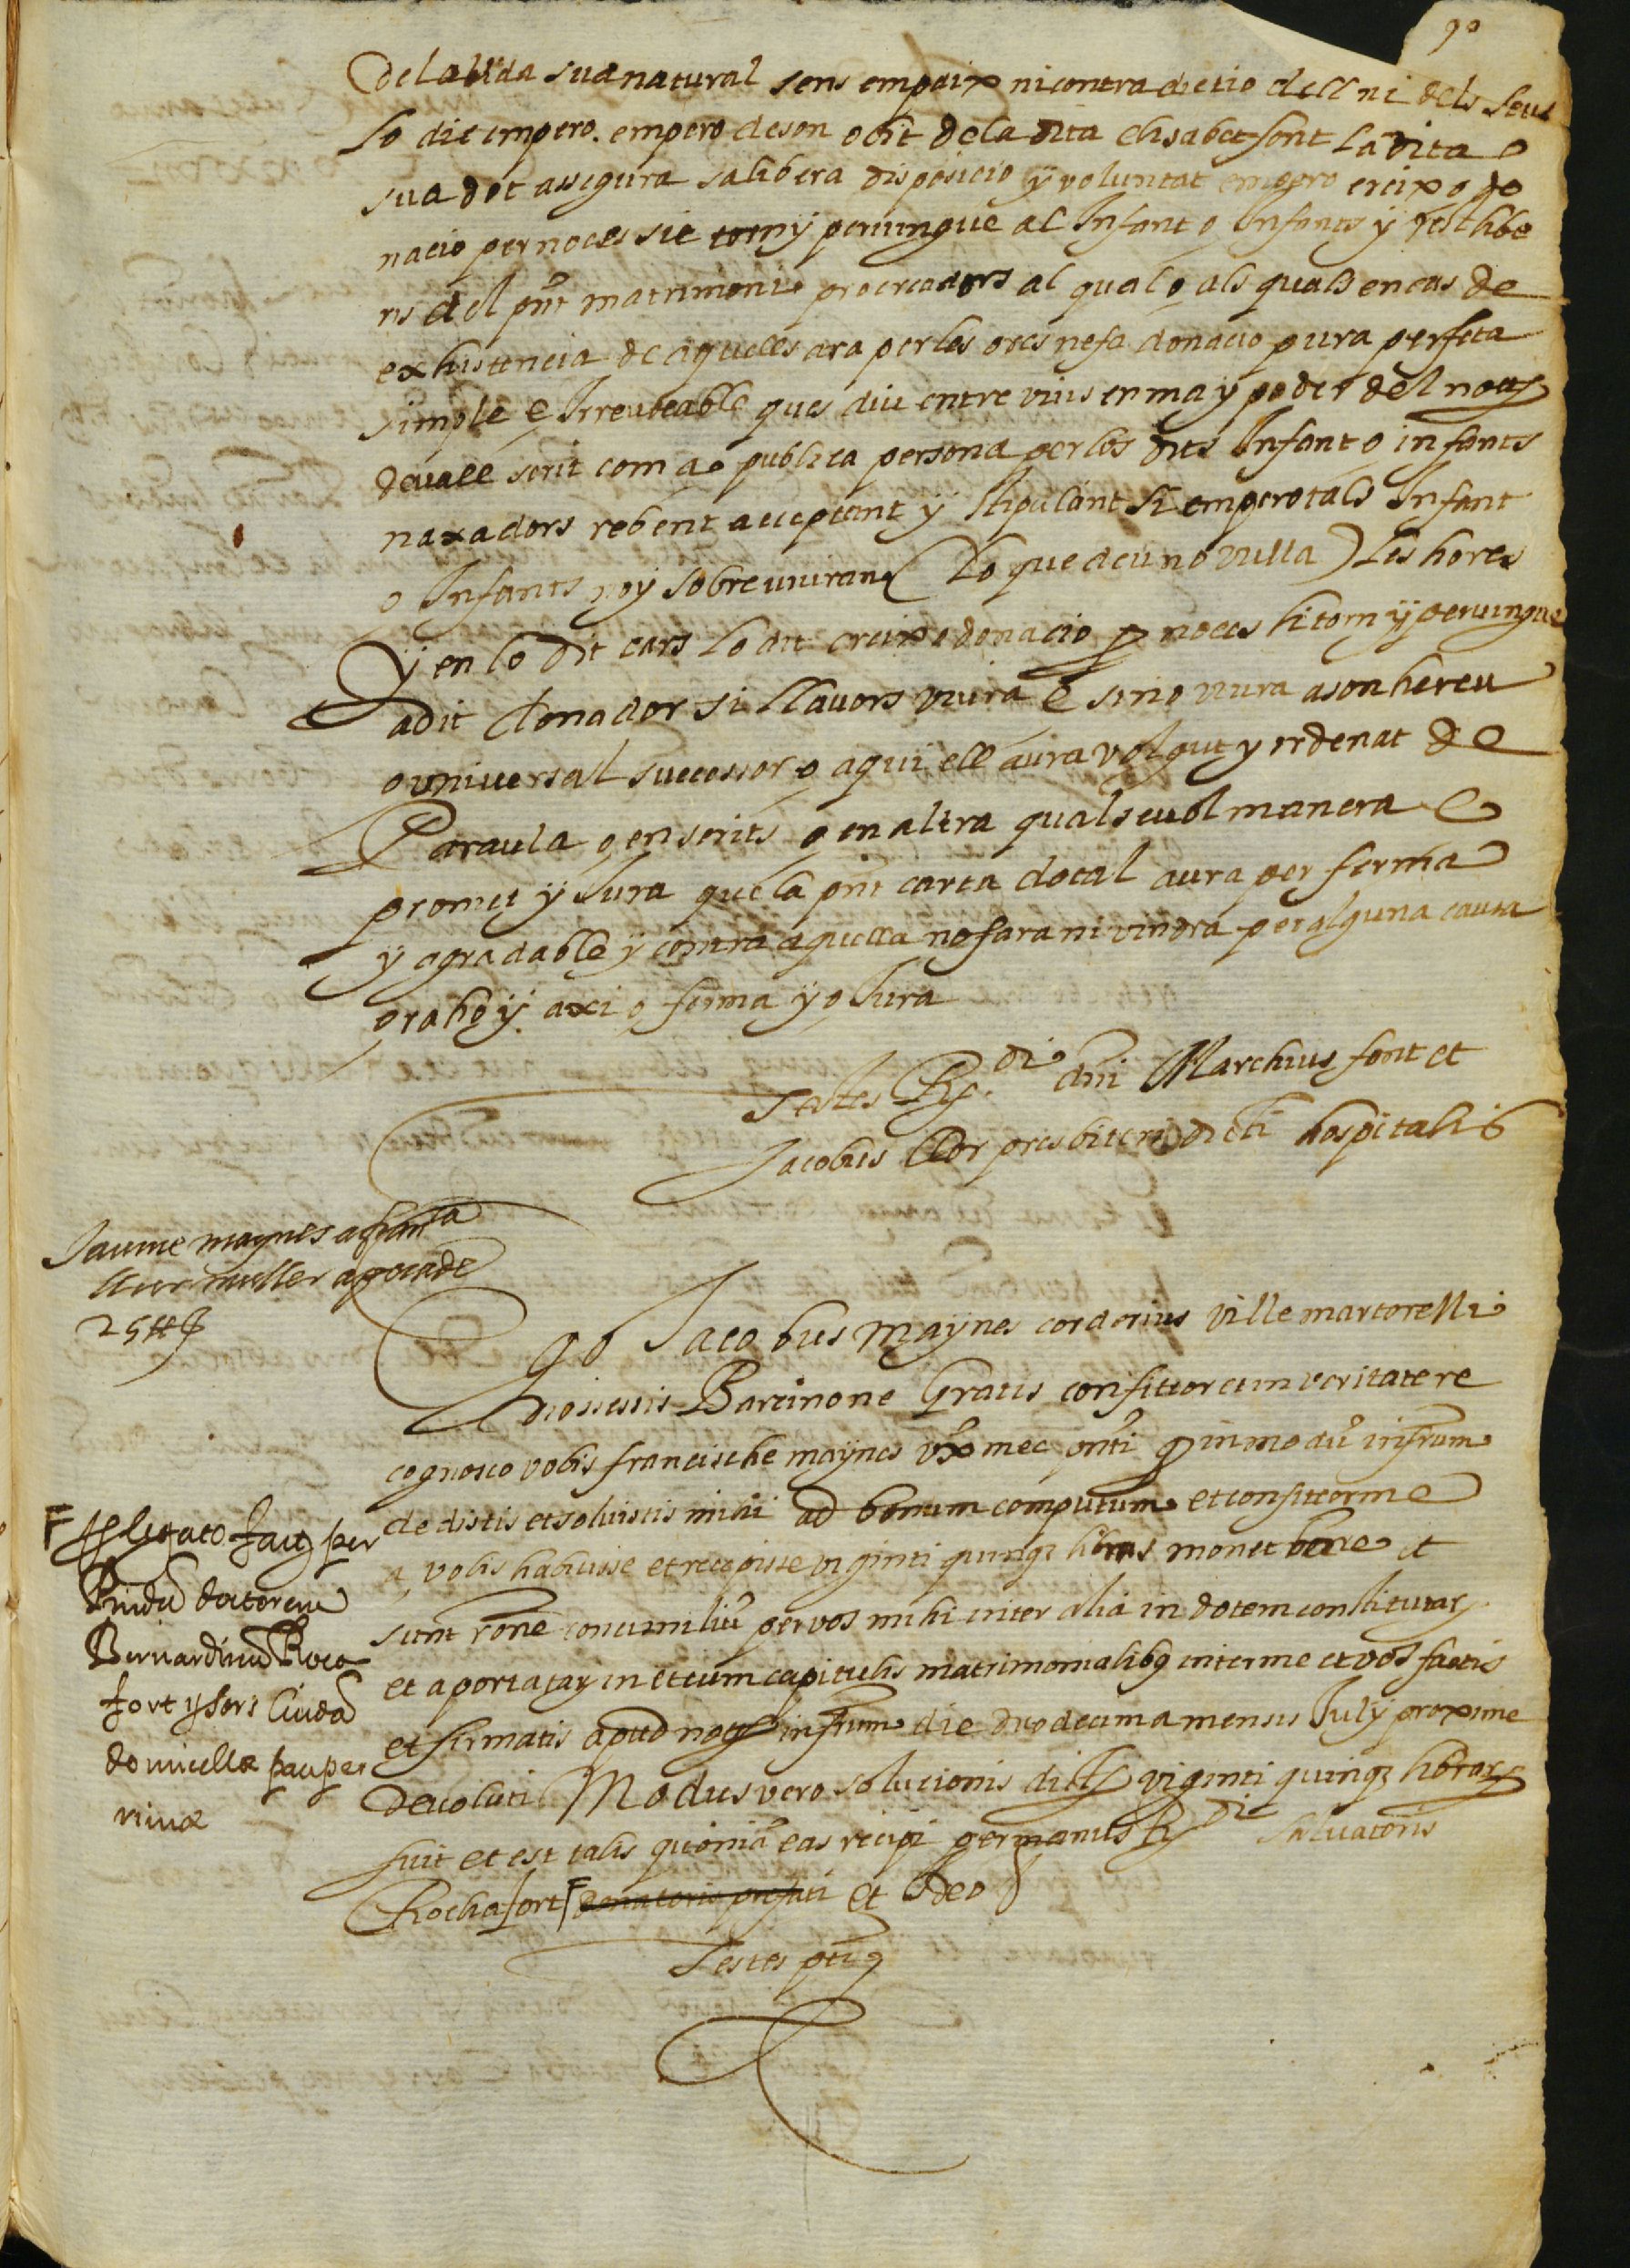 90
de la vida sua natural sens empaix ni contradictio dell ni dels seus
lo dit empero. empero de son obit de la dita elisabet font la dita
sua dot assegura sa libera disposicio y voluntat empero creix o do
nacio per noces sie torny pervingue al Infant o Infants y
rs del pñt matrimoni procreadors al qual o als quals en cas de
exhistencia de aquells ara per les ores ne fa donacio pura perfeta
simple e Irrevocable ques diu entre vius en ma y poder del nott
davall scrit com a publica persona per los dits Infant o infants
naxadors rebent acceptant y stipulant si empero tals Infant
o Infants noy sobreviuran (lo que deu no vulla) les hores
y en lo dit cars lo dit creix o donacio p noces li torn y pervingue
a dit donador si llavors viura e si no viura a son hereu
o universal successor o a qui ell aura volgut y ordenat de
Paraula o en scrits o en altra qualsevol manera e
promet y Jura que la pñt carta dotal aura per ferma
y agradable y contra aquella no fara ni vindra per alguna causa
o raho y axi o ferma y o Jura
Testes Rñ. di dñi Marchus font et
Jacobus llor presbiteri dicti hospitalis
Jaume maynes a franca
muller apoca de
25 ff
Ego Jacobus maynes corderius ville martorelli
diossesis Barcinone Gratis confiteor et in veritate re
cognosco vobis francische maynes vxo mee pñti q in modũ infrũm
dedistis et solvistis mihi ad bonum computum et confiteor me
a vobis habuisse et recepisse viginti quinqz libras monet barc et
sunt rõne per vos mihi inter alia in dotem constitutar
et aportatar in et cum capitulis matrimonialibq inter me et vos factis
et firmatis apud nott infrũm die duodecima mensis July proxime
devoluti Modus vero solucionis dictar viginti quinqz librar
fuit et est talis quoniã eas recipi per manus Rñ di Salvatoris
Rochafort F donatoris prefati et Ideo
Testes pũq
F legato fact per
doctorem
Bernardinũ Roca
fort
domicellæ pauper
rimæ